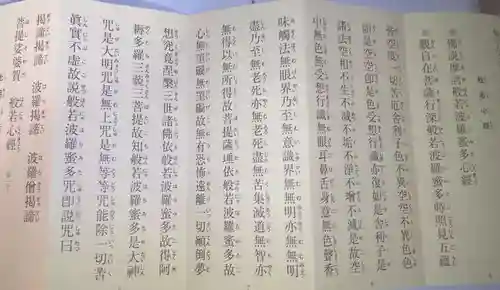 般若心經
佛說摩訶般若波羅蜜多心經
觀自在菩薩行深般若波羅蜜多時照見五蘊
皆空度一切苦厄舍利子色不異空空不異色色
卽是空空卽是色受想行識亦復如是舍利子是
諸法空相不生不滅不垢不淨不增不減是故空
中無色無受想行識無眼耳鼻舌身意無色聲香
味觸法無眼界乃至無意識界無無明亦無無明
盡乃至無老死亦無老死盡無苦集滅道無智亦
無得以無所得故菩提薩埵依般若波羅蜜多故
心無罣礙無罣礙故無有恐怖遠離一切顚倒夢
想究竟涅槃三世諸佛依般若波羅蜜多故得阿
耨多羅三藐三菩提故知般若波羅蜜多是大神
咒是大明咒是無上咒是無等等咒能除一切苦
眞實不虛故說般若波羅蜜多咒卽說咒曰
揭諦揭諦 波羅揭諦 波羅僧揭諦
菩提娑婆訶
般若心經